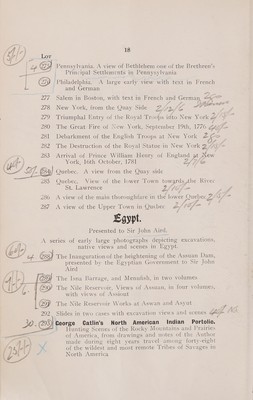 18
Lot
Pennsylvania. A view of Bethlehem one of the Brethren's
Principal Settlements in Pennsylvania
Philadelphia. A large early view with text in French
and German
277 Salem in Boston, with text in French and German
278 New York, from the Quay Side 2/2/6
279 Triumphal Entry of the Royal Troops into New York 2/5/-
280 The Great Fire of New York, September 19th, 1776
281 Debarkment of the English Troops at New York
282 The Destruction of the Royal Statue in New York
283 Arrival of Prince William Henry of England at New
York, 16th October, 1781
284 Quebec. A view from the Quay side
285 Quebec. View of the lower Town towards the River
St. Lawrence
286 A view of the main thoroughfare in the lower Quebec
287 A view of the Upper Town in Quebec
Egypt.
Presented to Sir John Aird.
A series of early large photographs depicting excavations,
native views and scenes in Egypt.
288 The Inauguration of the heightening of the Assuan Dam,
presented by the Egyptian Government to Sir John
Aird
289 The Isna Barrage, and Manufish, in two volumes
290 The Nile Reservoir. Views of Assuan, in four volumes,
with views of Assiout
291 The Nile Reservoir Works at Aswan and Asyut
292 Slides in two cases with excavation views and scenes
30. 293 George Catlin's North American Indian Portfolio.
Hunting Scenes of the Rocky Mountains and Prairies
of America, from drawings and notes of the Author
made during eight years travel among forty-eight
of the wildest and most remote Tribes of Savages in
North America
X